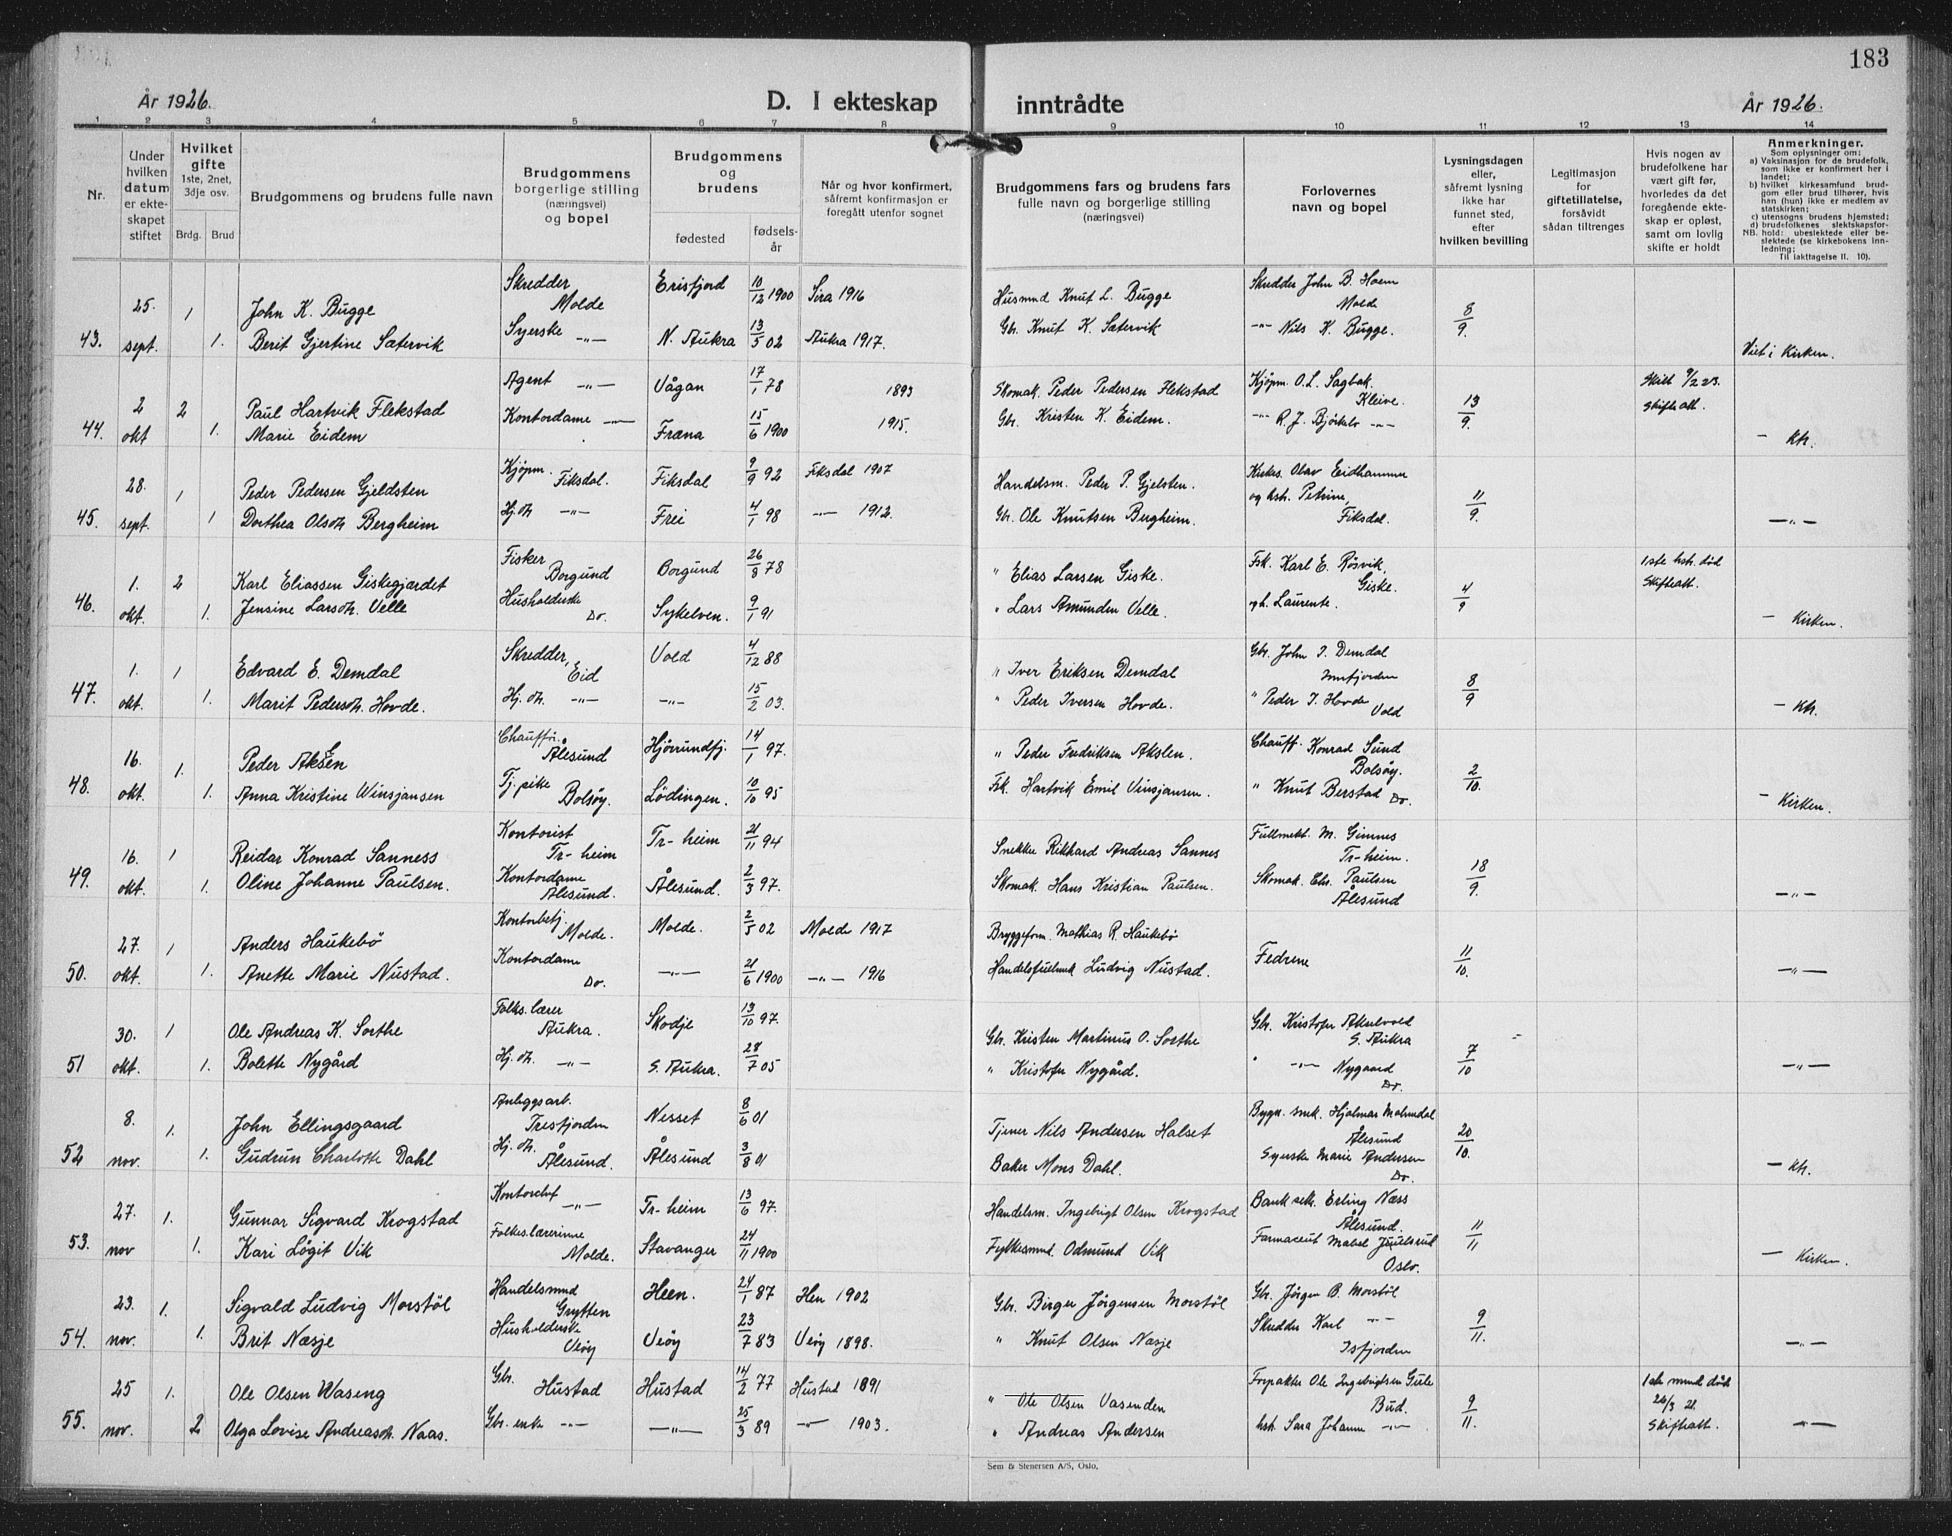 183
År 1926.
D. I ekteskap inntrådte
År 1926.
1 2 3 4 5 6 7 8 9 10 11 12 13 14
Nr.
Under hvilken datum er ekteskapet stiftet
Hvilket gifte 1ste, 2net, 3dje osv.
Brdg. Brud
Brudgommens og brudens fulle navn
Brudgommens borgerlige stilling (næringsvei) og bopel
Brudgommens og brudens
fødested
fødselsår
Når og hvor konfirmert, såfremt konfirmasjon er foregått utenfor sognet
Brudgommens fars og brudens fars fulle navn og borgerlige stilling (næringsvei)
Forlovernes navn og bopel
Lysningsdagen eller, såfremt lysning ikke har funnet sted, efter hvilken bevilling
Legitimasjon for giftetillatelse, forsåvidt sådan tiltrenges
Hvis nogen av brudefolkene har vært gift før, hvorledes da det foregående ekteskap er opløst, samt om lovlig skifte er holdt
Anmerkninger.
Som oplysninger om:
a) Vaksinasjon for de brudefolk, som ikke er konfirmert her i landet;
b) hvilket kirkesamfund brudgom eller brud tilhører, hvis han (hun) ikke er medlem av statskirken;
c) utensogns brudens hjemsted;
d) brudefolkenes slektskapsforhold: ubeslektede eller beslektede (se kirkebokens innledning;
NB.
Til iakttagelse II. 10).
43. 25. sept. 1 1.
John K. Bugge Skredder Molde Erisfjord 10/12 1900 Sira 1916 Husmnd Knut L. Bugge Skredder John B. Hoem Molde 8/9.
Berit Gjertine Sætervik Syerske -"- N. Aukra 13/5 02 Aukra 1917. Gbr. Knut K. Sætervik -"- Nils K. Bugge. Viet i Kirken.
44. 2 okt 2 1.
Paul Hartvik Flekstad Agent -"- Vågan 17/1 78 1893 Skomak. Peder Pedersen Flekstad Kjøpm. O. L. Sagbak. Kleive. 13/9. Skilt 9/2 23. Skifteatt.
Marie Eidem Kontordame -"- Fræna 15/6 1900 1915. Gbr. Kristen K. Eidem. -"- R. J. Bjørkelo -"- - Ktr.
45. 28. sept. 1 1
Peder Pedersen Gjeldsten Kjøpm. Fiksdal. Fiksdal 9/9 92 Fiksdal 1907 Handelsm. Peder P. Gjelsten. Kirkes. Olav Eidhammer og hstr. Petrine, Fiksdal. 11/9.
Dorthea Olsdtr. Bergheim Hj. dtr. -"- Frei 4/1 98 -"- 1912. Gbr. Ole Knutsen Bergheim. -"-
46. 1. okt. 2 1.
Karl Eliassen Giskegjerdet Fisker Borgund Borgund 26/8 78 " Elias Larsen Giske. Fsk. Karl E. Røsvik, Giske. 4/9 1ste hstr. død Skifteatt.
Jensine Larsdtr. Velle Husholderske Do. Sykelven. 9/1 91 " Lars Amunden Velle. og h. Laurente. - Kirken.
47. 1. okt. 1 1.
Edvard E. Demdal Skredder, Eid Vold 4/12 88 " Iver Eriksen Demdal Gbr. John I. Demdal Innfjorden 8/9
Marit Pedersdtr. Hovde. Hj. dtr. -"- -"- 15/2 03. " Peder Iversen Hovde. " Peder I. Hovde Vold - Ktr.
48. 16. okt. 1. 1.
Peder Akslen Chauffør. Ålesund Hjørundfj. 14/1 97. " Peder Fredriksen Akslen. Chauff. Konrad Sund Bolsøy. 2/10.
Anna Kristine Winsjansen Tj. pike Bolsøy. Lødingen. 10/10 95 Fsk. Hartvik Emil Vinsjansen. " Knut Berstad Do. - Kirken.
49. 16. okt. 1 1.
Reidar Konrad Sanness Kontorist Tr-heim Tr-heim 21/11 94 Snekker Rikhard Andreas Sannes Fullmekt. M. Gimnes Tr-heim. 18/9.
Oline Johanne Paulsen. Kontordame Ålesund. Ålesund. 2/3 97. Skomak. Hans Kristian Paulsen. Skomak. Chr. Paulsen Ålesund -"-
50. 27. okt. 1 1.
Anders Haukebø Kontorbetj. Molde. Molde. 2/5 02 Molde 1917 Bryggeform. Mathias R. Haukebø Fedrene 11/10.
Anette Marie Nustad. Kontordame Do. -"- 21/6 1900 -"- 1916 Handelsfullm. Ludvig Nustad. -"-
51 30. okt. 1 1.
Ole Andreas K. Sorthe Folks. lærer Aukra. Skodje 13/10 97. Gbr. Kristen Martinus O. Sorthe Gbr. Kristofer Akselvold S. Aukra 7/10
Bolette Nygård Hj. dtr. -"- S. Aukra. 28/7 05 " Kristofer Nygård. " -"- Nygaard Do. -"-
52 8. nov. 1. 1.
John Ellingsgaard Anleggsarb. Tresfjorden Nesset 8/6 01 Tjener Nils Andersen Halset Bygn. snek. Hjalmar Malmedal Ålesund 20/10.
Gudrun Charlotte Dahl Hj. dtr. Ålesund. Ålesund 3/8 01 Baker Mons Dahl. Syerske Marie Andersen Do. - Ktr.
53. 27. nov 1. 1.
Gunnar Sigvard Krogstad Kontorchef -"- Tr-heim 13/6 97. Handelsm. Ingebrigt Olsen Krogstad Bank sekr. Erling Næss Ålesund. 11/11
Kari Løgit Vik Folkes. lærerinne Molde. Stavanger 24/11 1900 Fylkesmnd. Odmund Vik Farmaceut Mabel Juulsrud Oslo. - Kirken.
54. 23. nov. 1. 1.
Sigvald Ludvig Morstøl Handelsmnd Grytten Heen. 24/1 87 Hen 1902 Gbr. Birger Jørgensen Morstøl Gbr. Jørgen B. Morstøl 9/11.
Brit Næsje Husholderske Veøy Veøy 23/7 83 Veøy 1898. " Knut Olsen Næsje Skredder Karl -"- Isfjorden -"-
55. 25 nov. 1. 2
Ole Olsen Waseng Gbr. Hustad Hustad 14/2 77 Hustad 1891 " Ole Olsen Vasenden Forpakter Ole Ingebrigtsen Gule Bud. 9/11. 1ste mand død 26/3 21. Skifteatt.
Olga Lovise Andreasdtr. Naas. Gbr. enke -"- -"- 25/3 89 -"- 1903. " Andreas Andersen hstr. Sara Johanne -"- -"-
Sem & Stenersen A/S, Oslo.